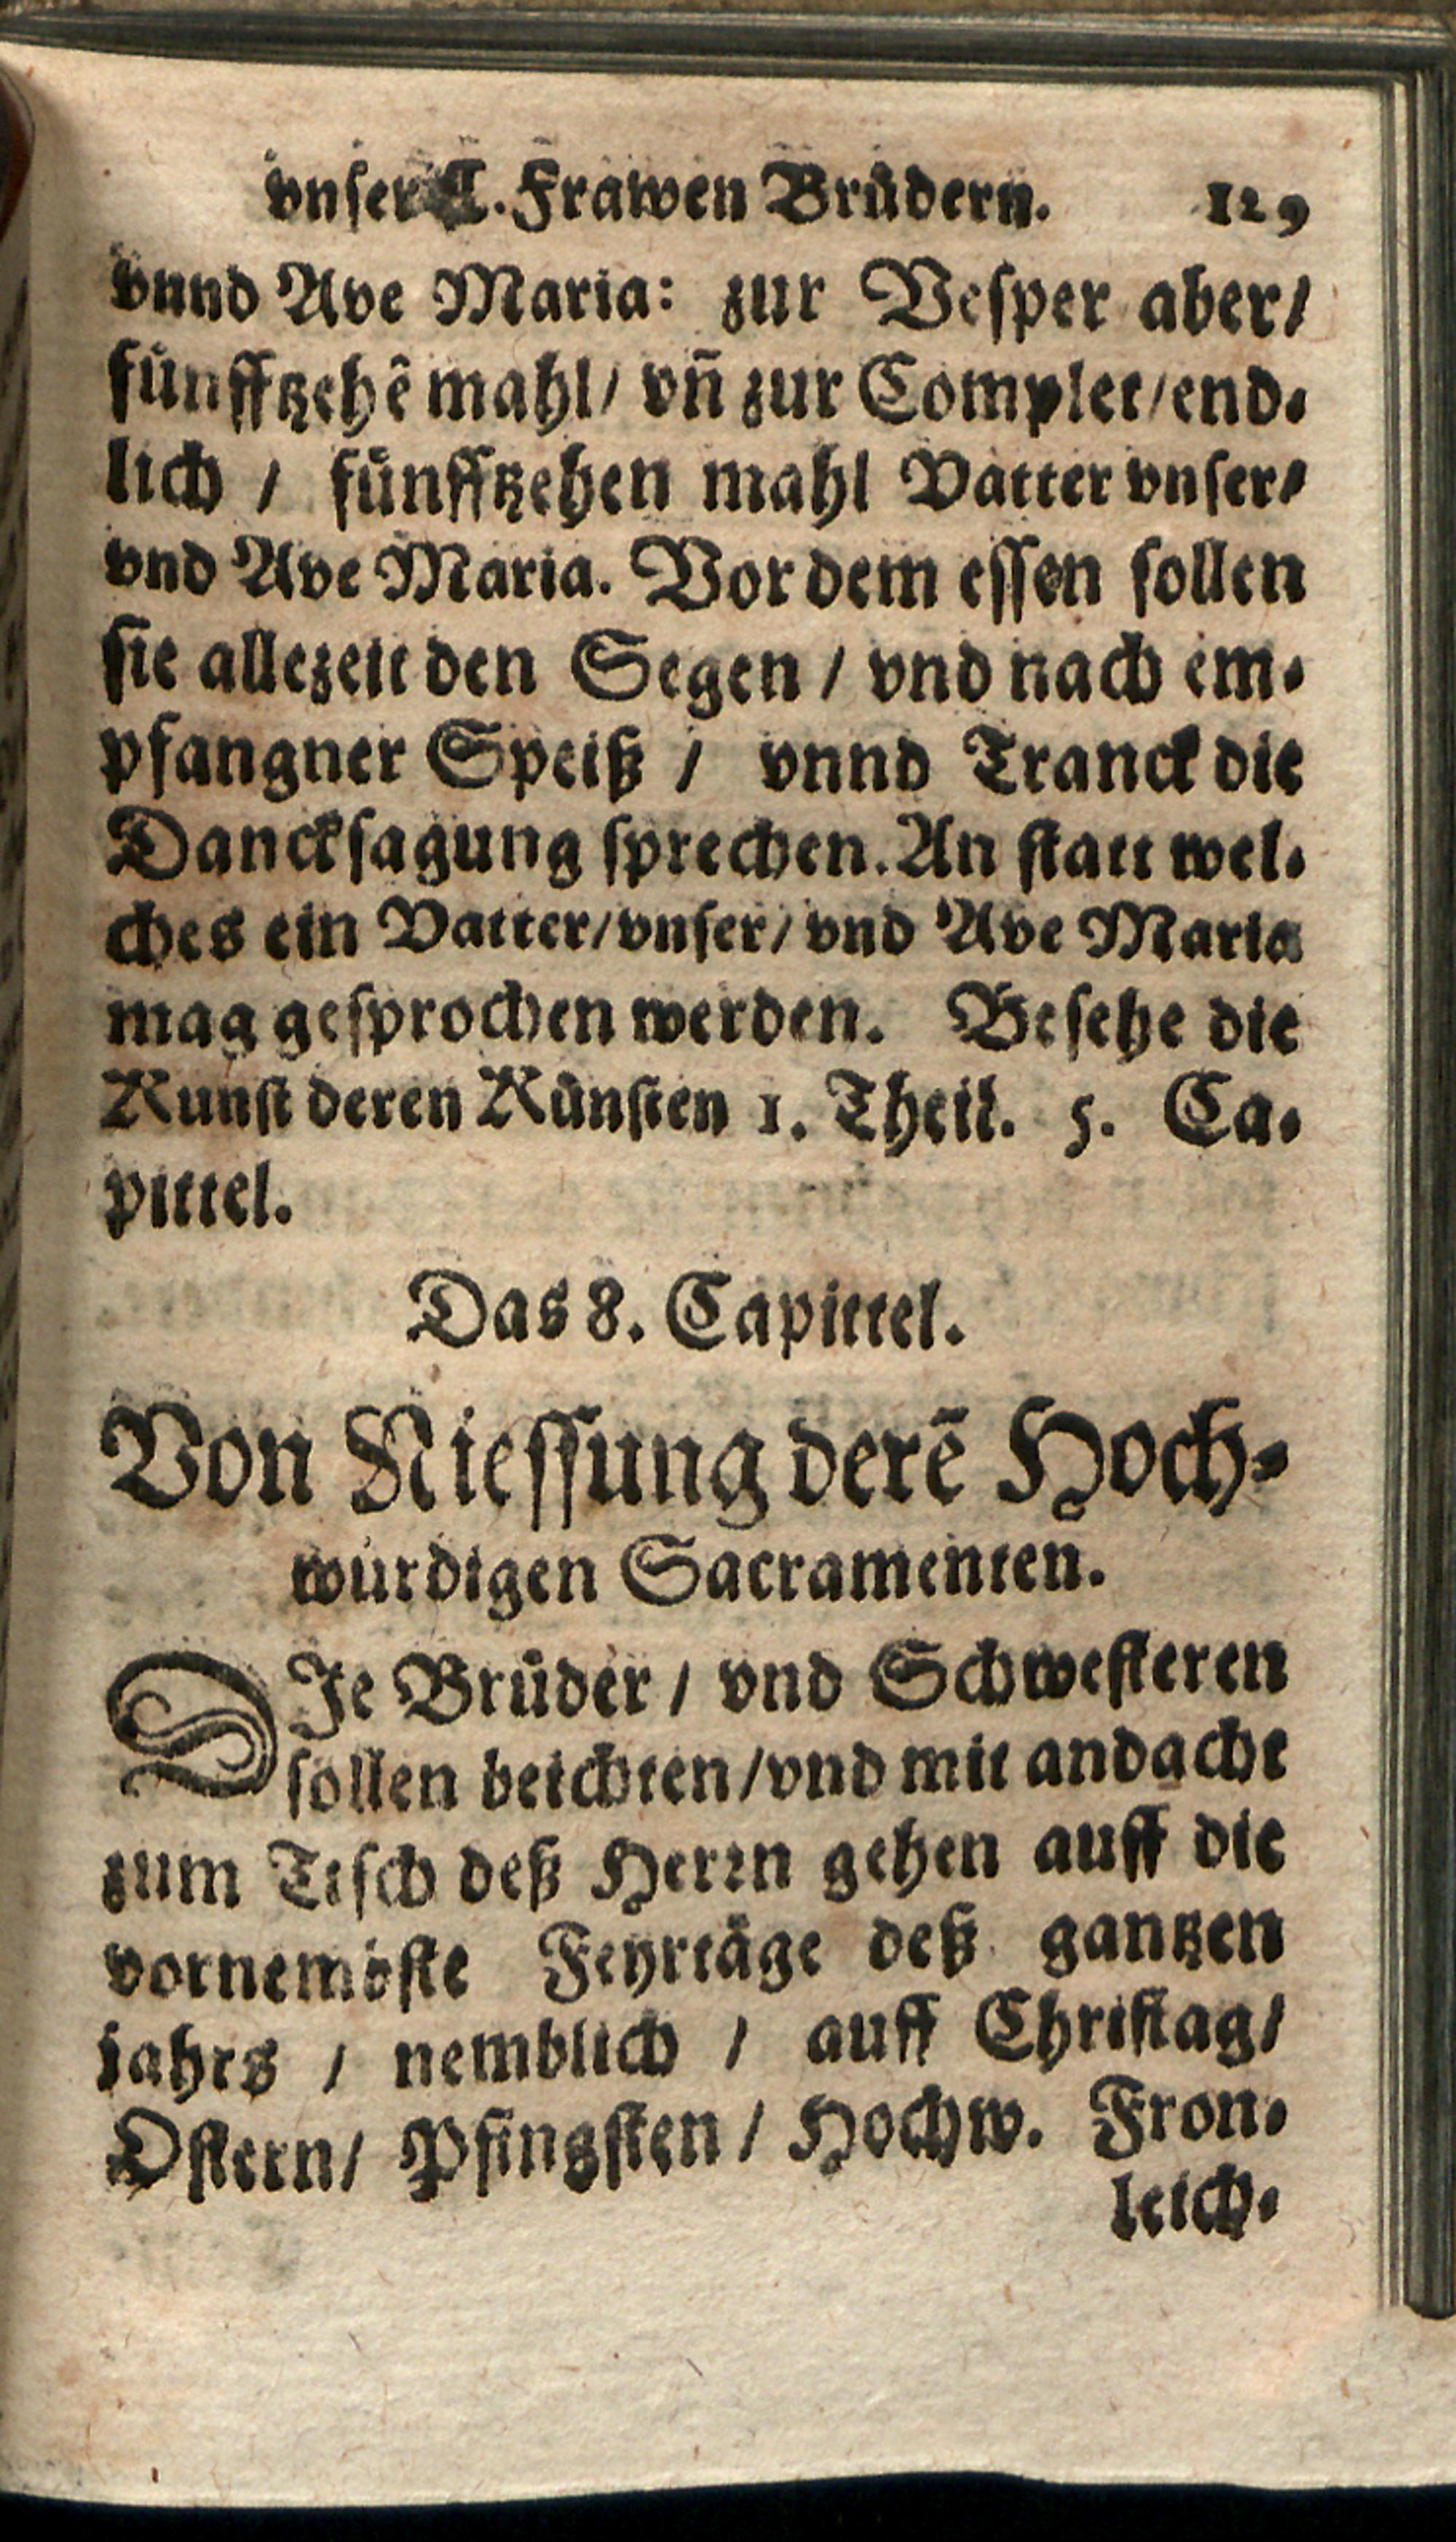 vnser L. Frawen Brüdern. 129
vnnd Ave Maria: zur Vesper aber/
fünfftzehẽ mahl/ vñ zur Complet/end-
lich / fünfftzehen mahl Vatter vnser/
vnd Ave Maria. Vor dem essen sollen
sie allezeit den Segen / vnd nach em-
pfangner Speiß / vnnd Tranck die
Dancksagung sprechen. An statt wel-
ches ein Vatter/vnser/ vnd Ave Maria
mag gesprochen werden. Besehe die
Kunst deren Künsten 1. Theil. 5. Ca-
pittel.
Das 8. Capittel.
Von Niessung derẽ Hoch-
würdigen Sacramenten.
DIe Brüder / vnd Schwesteren
sollen beichten/vnd mit andacht
zum Tisch deß Herrn gehen auff die
vornemöste Feyrtäge deß gantzen
jahrs / nemblich / auff Christag/
Ostern/ Pfingsten / Hochw. Fron-
leich-